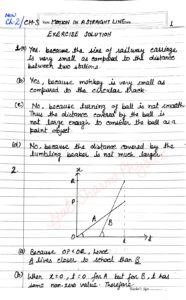 NEW
Ch-2/CH-3 MOTION IN A STRAIGHT LINE
1
EXERCISE SOLUTION
1.(a) Yes, because the size of railway carriage
is very small as compared to the distance
between two stations.
(b) Yes, because monkey is very small as
compared to the circular track
(c) No, because turning of ball is not smooth
Thus the distance covered by the ball is
not large enough to consider the ball as a
point object
(d) No, because the distance covered by the
tumbling beaker is not much larger.
2.
x
Q
P
A
B
O
t
(a) Because OP < OQ, hence
A lives closer to school than B
(b) When x=0, t=0 for A but for B, t has
some non-zero value. Therefore,